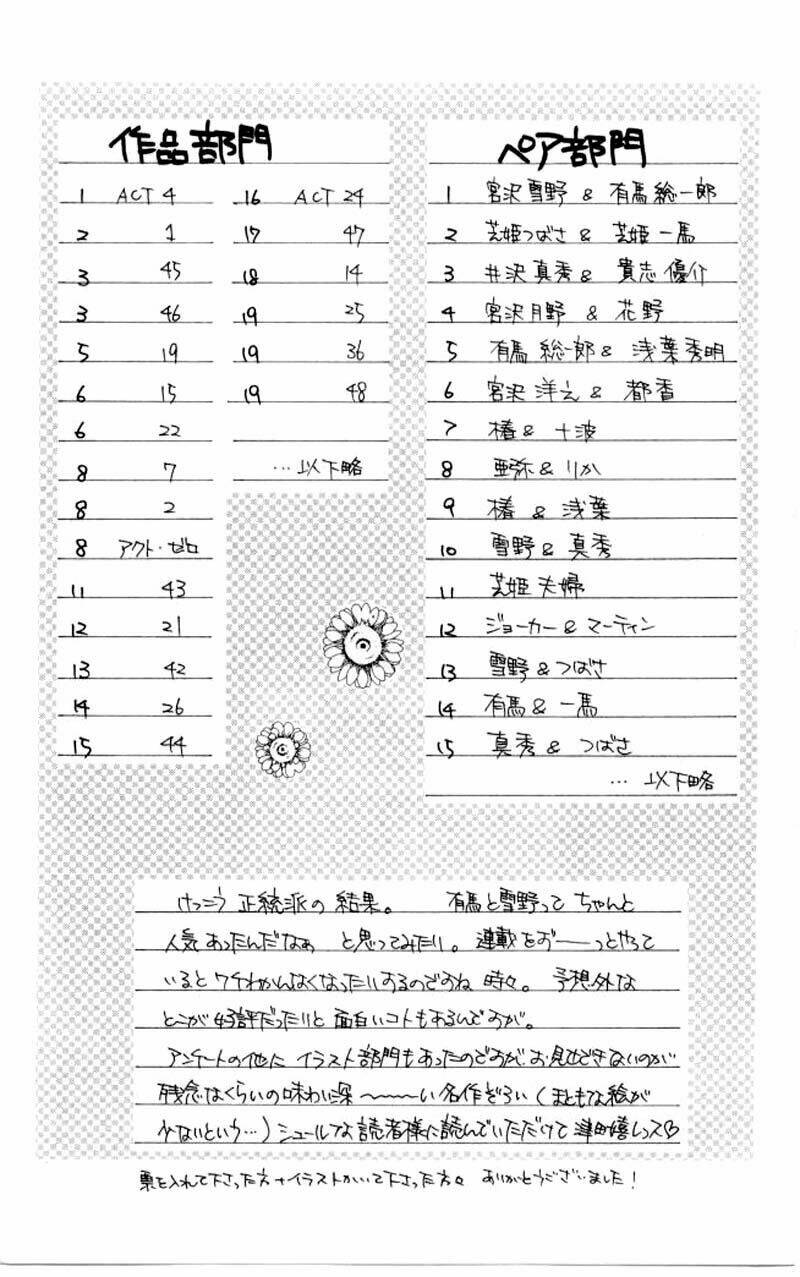 作品部門
1 ACT 4
2 1
3 45
3 46
5 19
6 15
6 22
8 7
8 2
8 アクト・ゼロ
11 43
12 21
13 42
14 26
15 44
16 ACT 24
17 47
18 14
19 25
19 36
19 48
…以下略
ペア部門
1 宮沢雪野 & 有馬総一郎
2 芝姫つばさ & 芝姫一馬
3 井沢真秀 & 貴志優介
4 宮沢月野 & 花野
5 有馬総一郎 & 浅葉秀明
6 宮沢洋之 & 都香
7 椿 & 十波
8 亜弥 & りか
9 椿 & 浅葉
10 雪野 & 真秀
11 芝姫夫婦
12 ジョーカー & マーティン
13 雪野 & つばさ
14 有馬 & 一馬
15 真秀 & つばさ
… 以下略
けっこう正統派の結果。 有馬と雪野って ちゃんと
人気あったんだなぁ と思ってみたり。 連載をず――っとやって
いると ワケわかんなくなったりするのですね 時々。 予想外な
とこが好評だったりと 面白いコトもあるんですが。
アンケートの他に イラスト部門もあったのですが、お見せできないのが
残念なくらいの味わい深〜〜〜い名作ぞろい（まともな絵が
少ないという…）シュールな読者様に読んでいただけて 津田嬉しっス♡
票を入れて下さった方+イラストかいて下さった方々 ありがとうございました！